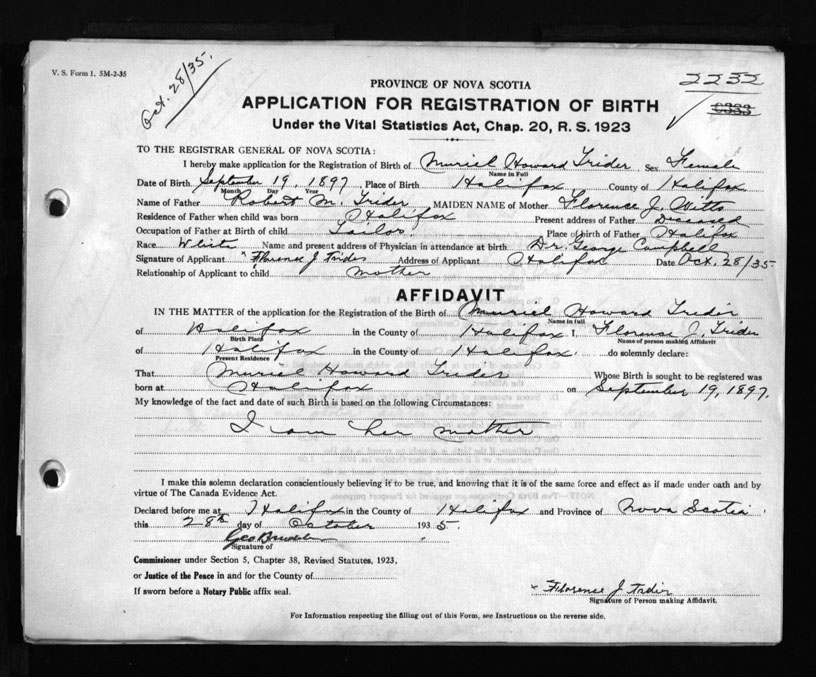 V. S. Form 1. 5M-2-35
Oct. 28/35.
2232
PROVINCE OF NOVA SCOTIA
APPLICATION FOR REGISTRATION OF BIRTH
Under the Vital Statistics Act, Chap. 20, R. S. 1923
TO THE REGISTRAR GENERAL OF NOVA SCOTIA:
I hereby make application for the Registration of Birth of Muriel Howard Trider Sex Female
Name in Full
Date of Birth September 19, 1897 Place of Birth Halifax, County of Halifax
Month Day Year
Name of Father Robert M. Trider MAIDEN NAME of Mother Florence J. Witts
Residence of Father when child was born Halifax Present address of Father Deceased
Occupation of Father at Birth of child Tailor Place of birth of Father Halifax
Race White Name and present address of Physician in attendance at birth Dr. George Campbell
Signature of Applicant Florence J Trider Address of Applicant Halifax Date Oct. 28/35.
Relationship of Applicant to child mother
AFFIDAVIT
IN THE MATTER of the application for the Registration of the Birth of Muriel Howard Trider
Name in full
of Halifax in the County of Halifax I, Florence J. Trider
Birth Place Name of person making Affidavit
of Halifax in the County of Halifax. do solemnly declare:
Present Residence
That Muriel Howard Trider Whose Birth is sought to be registered was
born at Halifax on September 19, 1897.
My knowledge of the fact and date of such Birth is based on the following Circumstances:
I am her mother
I make this solemn declaration conscientiously believing it to be true, and knowing that it is of the same force and effect as if made under oath and by
virtue of The Canada Evidence Act.
Declared before me at Halifax in the County of Halifax and Province of Nova Scotia
this 28th day of October 1935.
Geo
Signature of
Commissioner under Section 5, Chapter 38, Revised Statutes, 1923,
or Justice of the Peace in and for the County of
If sworn before a Notary Public affix seal.
x Florence J Trider
Signature of Person making Affidavit.
For Information respecting the filling out of this Form, see Instructions on the reverse side.